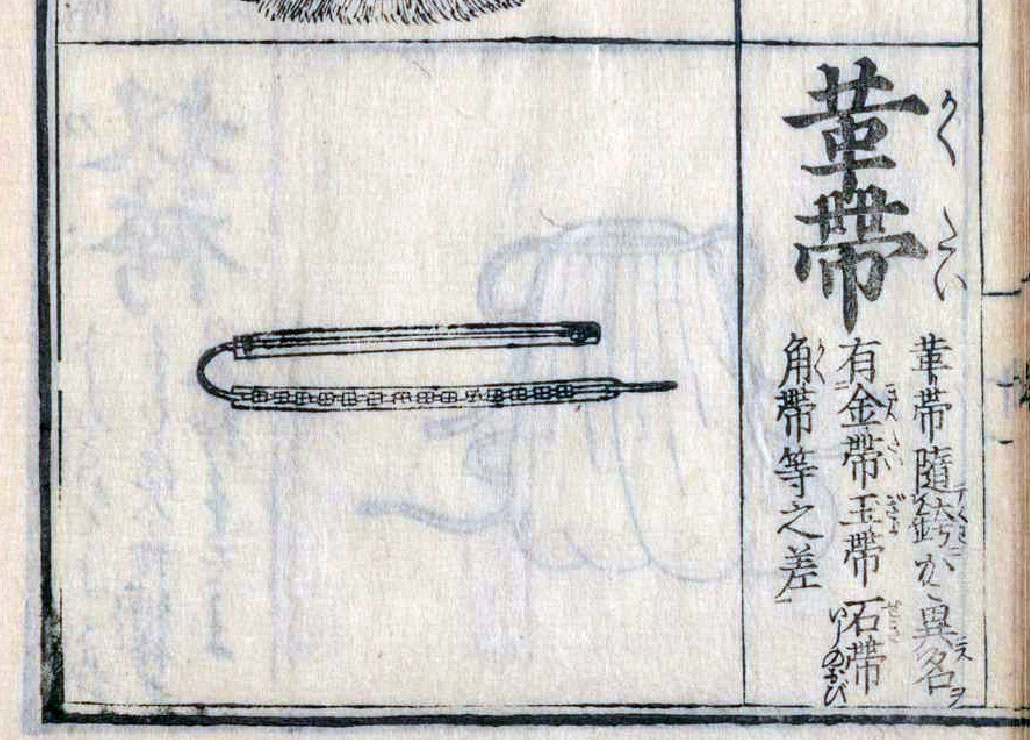 革帯
かくたい
革帯隨鍔か異名ヲ
有金帯玉帯石帯
角帯等之差